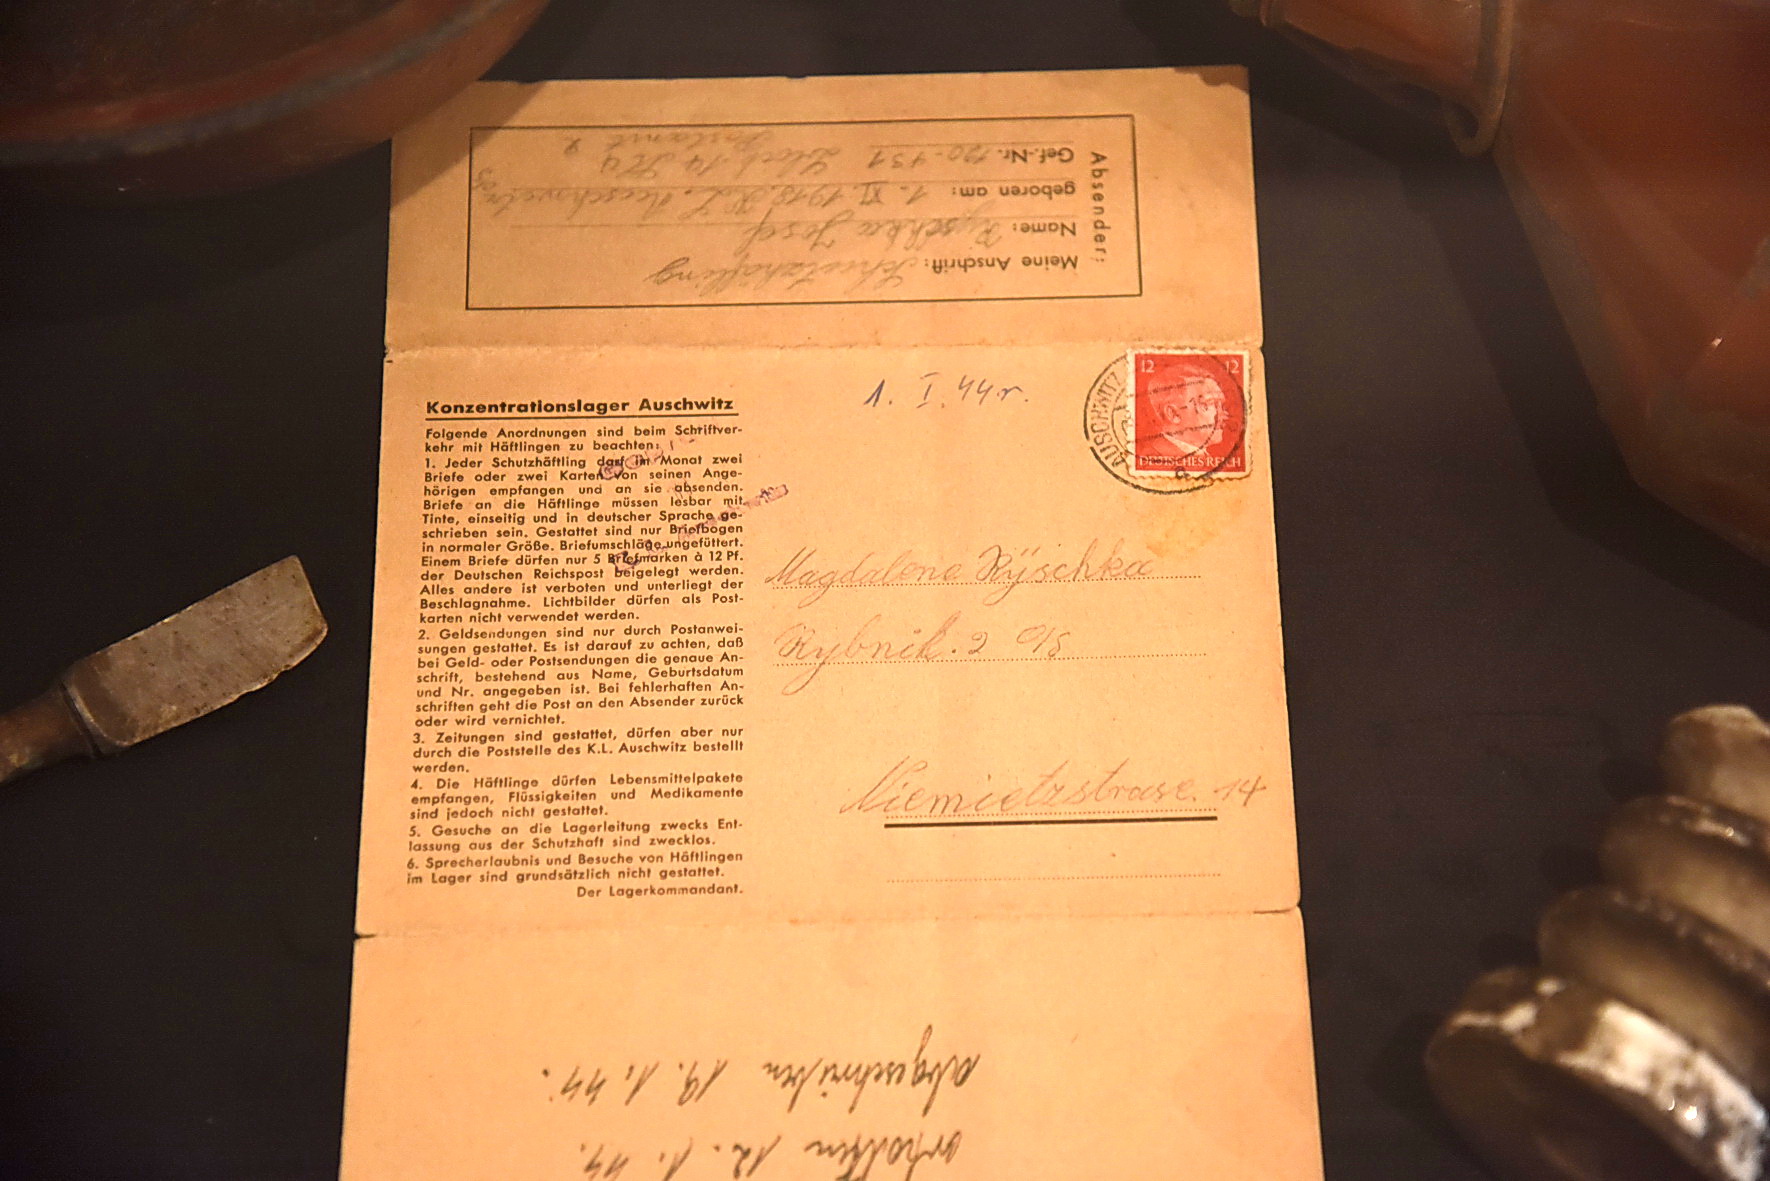 Absender:
Meine Anschrift: Schutzhäftling
Name: Ryschka Josef
geboren am: 1. XI. 1918. K. L.
Gef.-Nr. 120-151 Block 14
Postamt 2
1. I. 44 r.
12 12
DEUTSCHES REICH
AUSCHWITZ
Konzentrationslager Auschwitz
Folgende Anordnungen sind beim Schriftver-
kehr mit Häftlingen zu beachten:
1. Jeder Schutzhäftling darf im Monat zwei
Briefe oder zwei Karten von seinen Ange-
hörigen empfangen und an sie absenden.
Briefe an die Häftlinge müssen lesbar mit
Tinte, einseitig und in deutscher Sprache ge-
schrieben sein. Gestattet sind nur Briefbogen
in normaler Größe. Briefumschläge ungefüttert.
Einem Briefe dürfen nur 5 Briefmarken à 12 Pf.
der Deutschen Reichspost beigelegt werden.
Alles andere ist verboten und unterliegt der
Beschlagnahme. Lichtbilder dürfen als Post-
karten nicht verwendet werden.
2. Geldsendungen sind nur durch Postanwei-
sungen gestattet. Es ist darauf zu achten, daß
bei Geld- oder Postsendungen die genaue An-
schrift, bestehend aus Name, Geburtsdatum
und Nr. angegeben ist. Bei fehlerhaften An-
schriften geht die Post an den Absender zurück
oder wird vernichtet.
3. Zeitungen sind gestattet, dürfen aber nur
durch die Poststelle des K.L. Auschwitz bestellt
werden.
4. Die Häftlinge dürfen Lebensmittelpakete
empfangen, Flüssigkeiten und Medikamente
sind jedoch nicht gestattet.
5. Gesuche an die Lagerleitung zwecks Ent-
lassung aus der Schutzhaft sind zwecklos.
6. Sprecherlaubnis und Besuche von Häftlingen
im Lager sind grundsätzlich nicht gestattet.
Der Lagerkommandant.
Magdalene Rÿschka
Rybnik. 2 O/S
Niemietzstrase. 14
erhalten 12. 1. 44.
abgeschrieben 19. 1. 44.